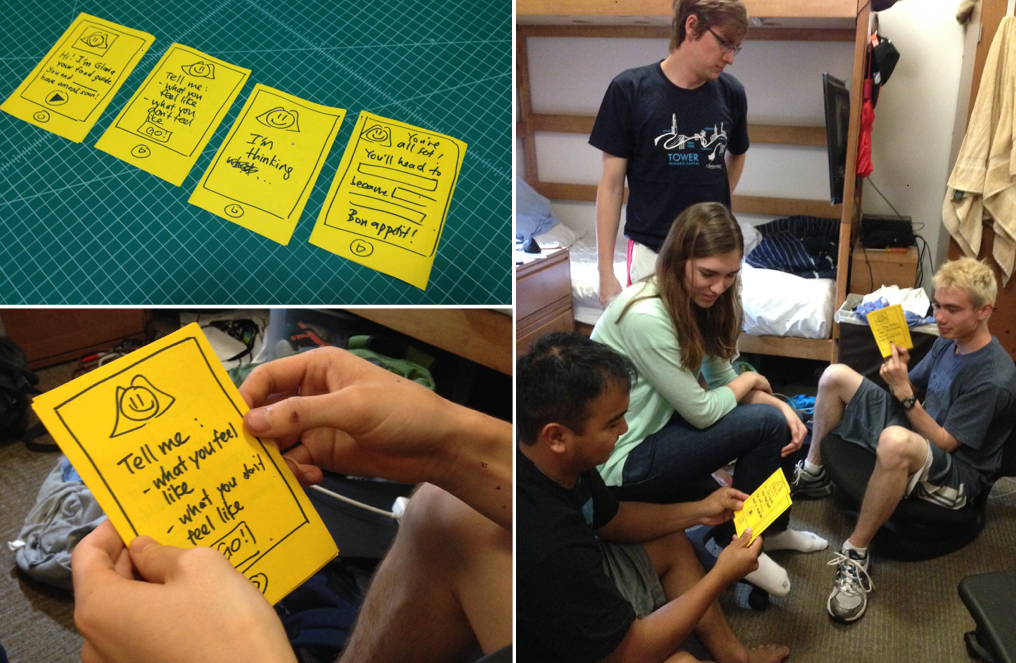 Hi! I'm Glana
your food guide.
You and
have a meal soon!
Tell me:
- what you
feel like
- what you
don't feel
like
GO!
b
I'm
thinking
...
b
You're
all set!
You'll head to
because
Bon appetit!
b
Tell me:
- what you feel
like
- what you don't
feel like
GO!
b
TOWER